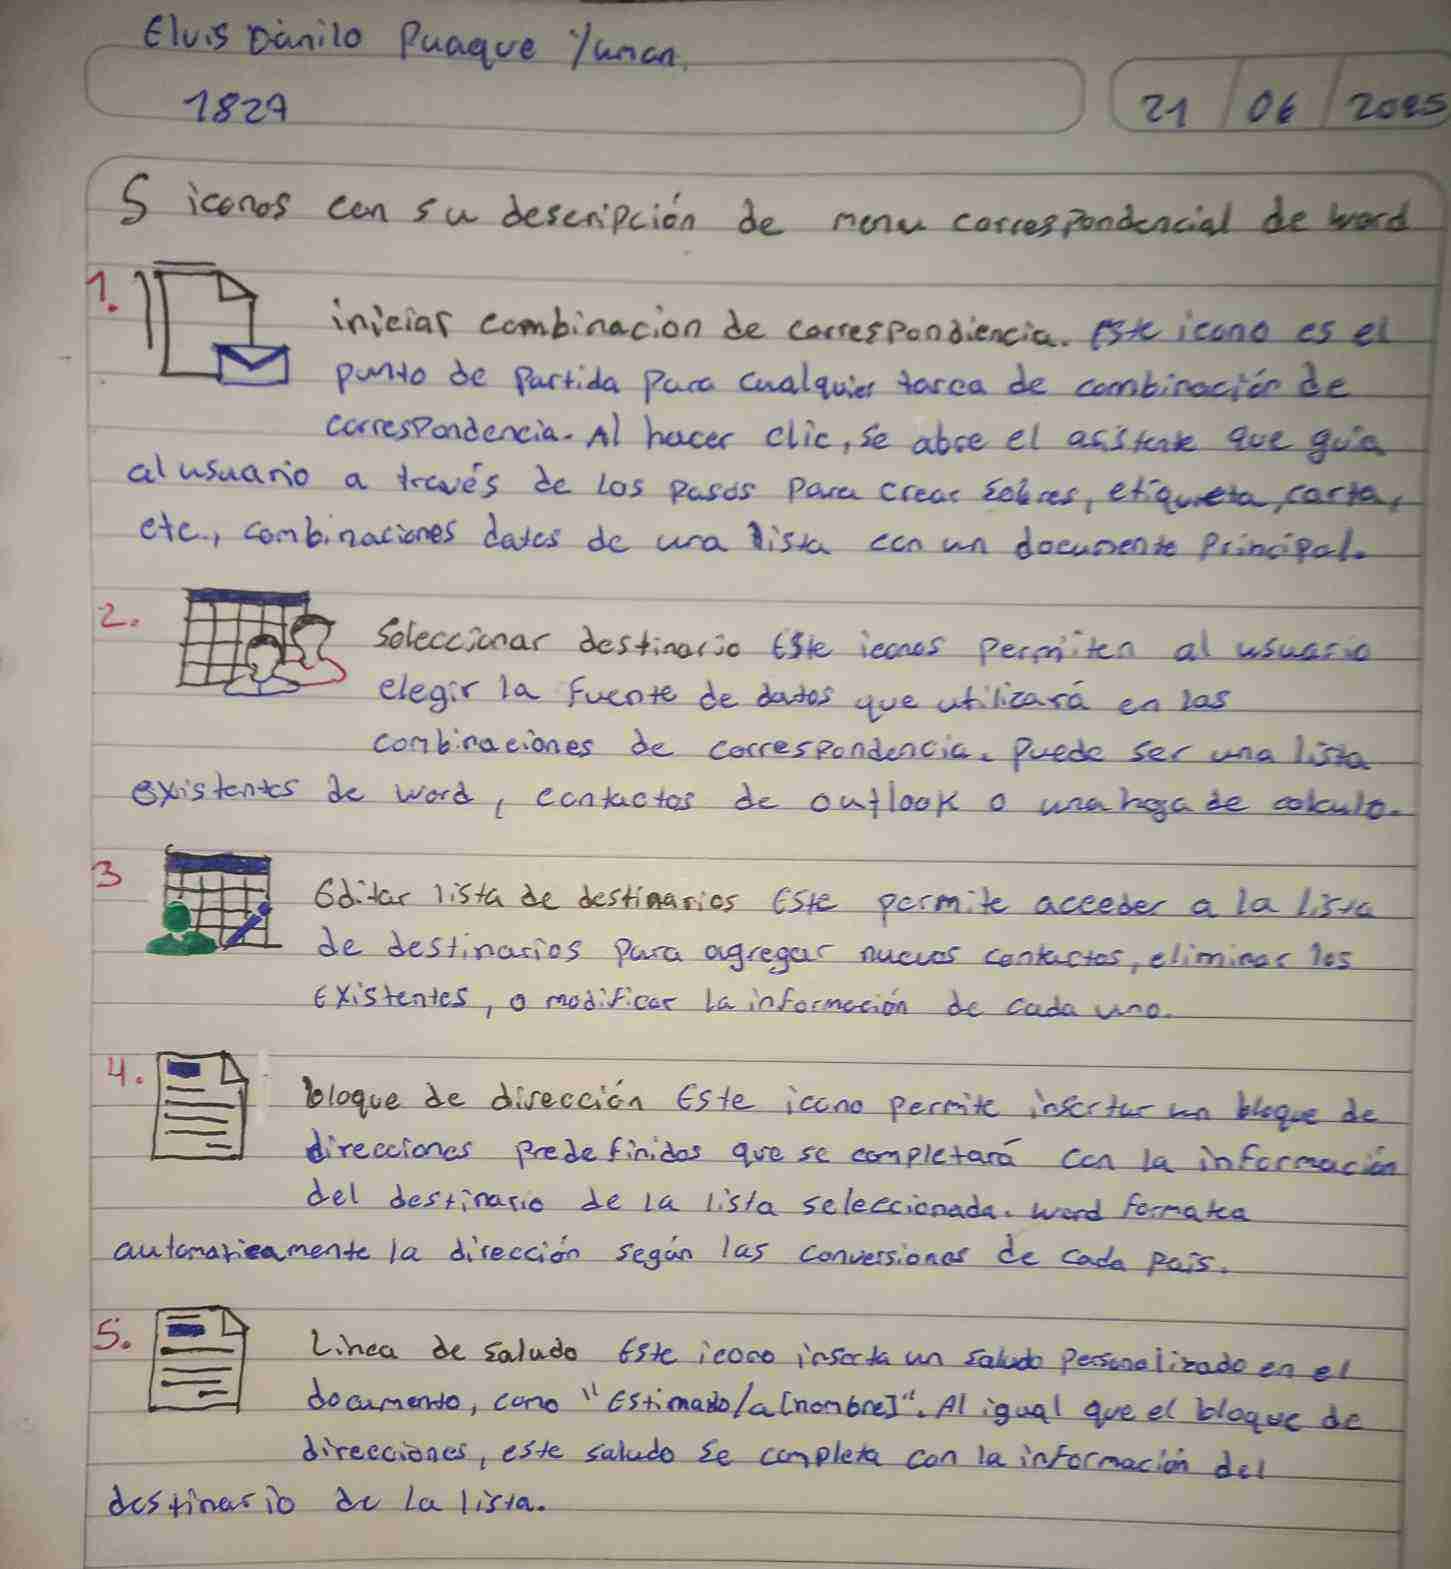 Elvis Danilo Puaque Yuman.
1829
21 / 06 / 2025
5 iconos con su descripción de menu correspondencial de word
1. iniciar combinacion de correspondiencia. Este icono es el
punto de Partida Para cualquier tarea de combinación de
correspondencia. Al hacer clic, se abre el asistente que guia
al usuario a través de los pasos Para crear sobres, etiqueta, carta,
etc., combinaciones datos de una lista con un documento Principal.
2. Seleccionar destinario Este iconos permiten al usuario
elegir la fuente de datos que utilizará en las
combinaciones de correspondencia. Puede ser una lista
existentes de word, contactos de outlook o una hoja de calculo.
3 Editar lista de destinarios Este permite acceder a la lista
de destinarios para agregar nuevos contactos, eliminar los
existentes, o modificar la información de cada uno.
4. bloque de dirección Este icono permite insertar un bloque de
direcciones predefinidos que se completará con la información
del destinario de la lista seleccionada. word formatea
automaticamente la dirección según las conversiones de cada país.
5. Linea de saludo Este icono inserta un saludo personalizado en el
documento, como "Estimado/a [nombre]". Al igual que el bloque de
direcciones, este saludo se completa con la información del
destinario de la lista.